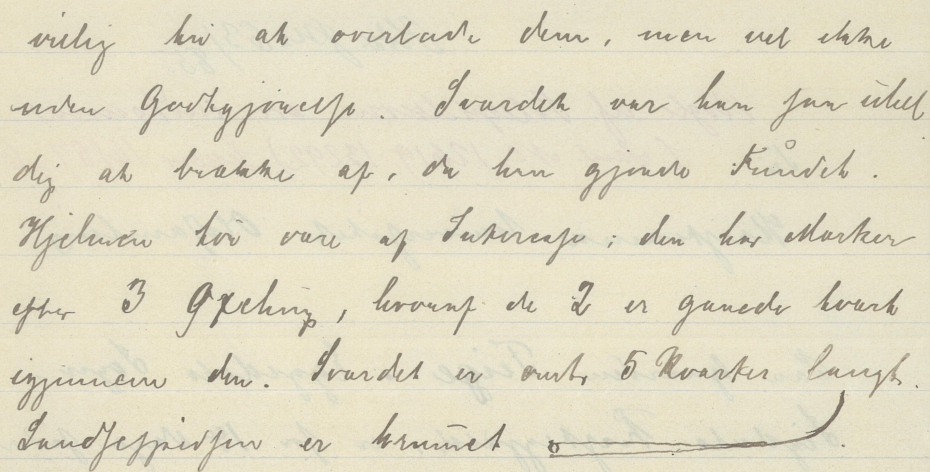 villig til at overlade dem, men vel ikke
uden Godtgjørelse. Sværdet var han saa uhel
dig at brække af, da han gjorde Fundet.
Hjelmen tør være af Interesse; den har Mærker
efter 3 Øxehug, hvoraf de 2 er gaaede tvært
igjennem den. Sværdet er omtr 5 Kvarter langt.
Landsespidsen er krummet